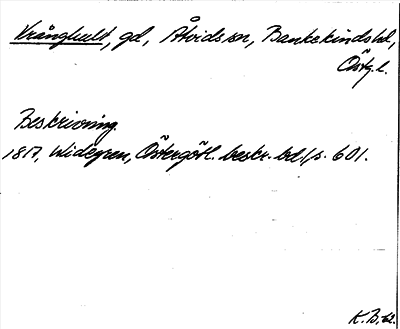 Vrånghult, gd, Åtvids sn, Bankekinds hd,
Östg. l.
Beskrivning.
1817, Widegren, Östergötl. beskr. bd 1, s. 601.
K. B:bl.